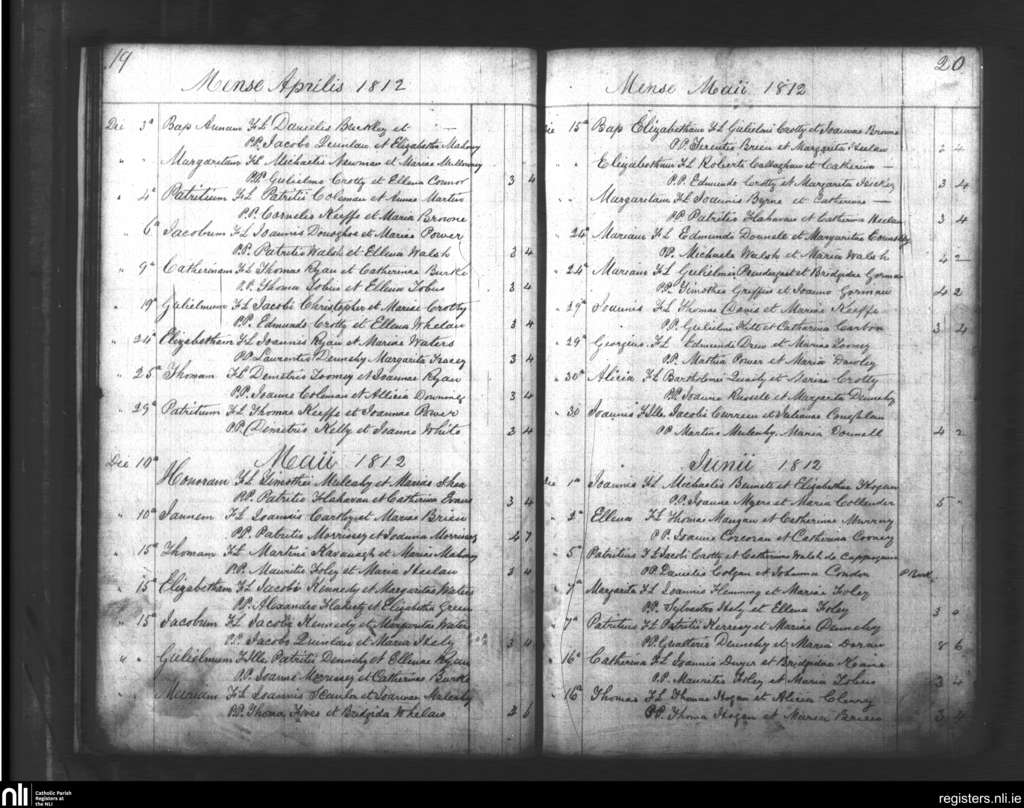 19
Mense Aprilis 1812
Die 3ª Bap Annam FL Danielis Buckley et
P.P. Jacobo Quinlan et Elizabetha Mahony
" " Margaretam FL Michaelis Newman et Mariae
P.P. Gulielmo Crotty et Ellena Connor 3 4
" 4ª Patritium FL Patritii Coleman et Annae Martin
P.P. Cornelio Keeffe et Maria Browne
" 6ª Jacobum FL Joannis Donoghoe et Mariae Power
P.P. Patritio Walsh et Ellena Walsh 3 4
" 9ª Catherinam FL Thomae Ryan et Catherinae Burke
P.P. Thoma Tobin et Ellena Tobin 3 4
" 19ª Gulielmum FL Jacobi Christopher et Mariae Crotty
P.P. Edmundo Crotty et Ellena Whelan 3 4
" 24ª Elizabetham FL Joannis Ryan et Mariae Waters
P.P. Laurentio Dennehy Margarita 3 4
" 25ª Thomam FL Demetrii Looney et Joannae Ryan
P.P. Joanne Coleman et Allicia Downing 3 4
" 29ª Patritium FL Thomae Keeffe et Joannae Power
P.P. Demetrio Kelly et Joanna White 3 4
Maii 1812
Die 10ª Honoram FL Timothei Mulcahy et Mariae Shea
P.P. Patritio Flahavan et Catherina Evans 3 4
" 10ª FL Joannis et Mariae Brien
P.P. Patritio Morrissey et Joanna Morrissey 4 7
" 15ª Thomam FL Martini Kavanagh et Mariae Mahony
P.P. Mauritio Foley et Maria Heelan 3 4
" 15ª Elizabetham FL Jacobi Kennedy et Margaritae Waters
P.P. Alexandro Flaherty et Elizabetha Green
" 15ª Jacobum FL Jacobi Kennedy et Margaritae Water
P.P. Jacobo Quinlan et Maria Hely 3 4
" " Gulielmum F Patritii Dennehy et Ellenae Ryan
P.P. Joanne Morrissey et Catherina Burke
" " Mariam FL Joannis Scanlon et Joannae Mulcahy
P.P. Thoma et Bridgida Whelan 3 6
20
Mense Maii 1812
Die 15ª Bap Elizabetham FL Gulielmi Crotty et Joannae Browne
P.P. Terentio Brien et Margarita Heelan
" " Elizabetham FL Roberti Callaghan et Catherina —
P.P. Edmundo Crotty et Margarita Hickey 3 4
" " Margaretam FL Joannis Byrne et Catherinae —
P.P. Patritio Flahavan et Catherina Heelan 3 4
" 24ª Mariam FL Edmundi Donnell et Margaritae
P.P. Michaele Walsh et Maria Walsh 4 2
" 24ª Mariam FL Gulielmi Prendergast et Bridgidae Gorman
P.P. Timotheo Griffin et Joanna Gorman 4 2
" 29ª Joannis FL Thomae et Mariae Keeffe
P.P. Gulielmo et Catharina Carbon 3 4
" 29ª Georgius FL Edmundi Drew et Mariae Looney
P.P. Mathia Power et Maria Dawley
" 30ª Alicia FL Bartholomei et Mariae Crotty
P.P. Joanne Russell et Margarita Dennehy
" 30 Joannis F Jacobi Curreen et Julianae Coughlan
P.P. Martino Mulcahy, Maria Donnell 4 2
Junii 1812
Die 1ª Joannis FL Michaelis Bennett et Elizabethae Hogan
P.P. Joanne Myers et Maria 5 "
" 2ª Ellena FL Thomae Mangan et Catherinae Murray
P.P. Joanne Corcoran et Catherina Cooney
" 5ª Patritius FL Jacobi Crotty et Catherinae Walsh de Cappoquin
P.P. Daniele Colgan et Johanna Condon
" 7ª Margarita FL Joannis Flemming et Mariae Foley
P.P. Sylvestro Hely et Ellena Foley
" 7ª Patritius FL Patritii Kerresy et Mariae Dennehy
P.P. Gualtero Dennehy et Maria Doran 8 6
" 16ª Catherina FL Joannis Dwyer et Bridgidae Keane
P.P. Mauritio Foley et Maria Tobin 3 4
" 16ª Thomas FL Thomae Hogan et Alicia Clancy
P.P. Thoma Hogan et Maria 3 4
nli
Catholic Parish
Registers at
the NLI
registers.nli.ie